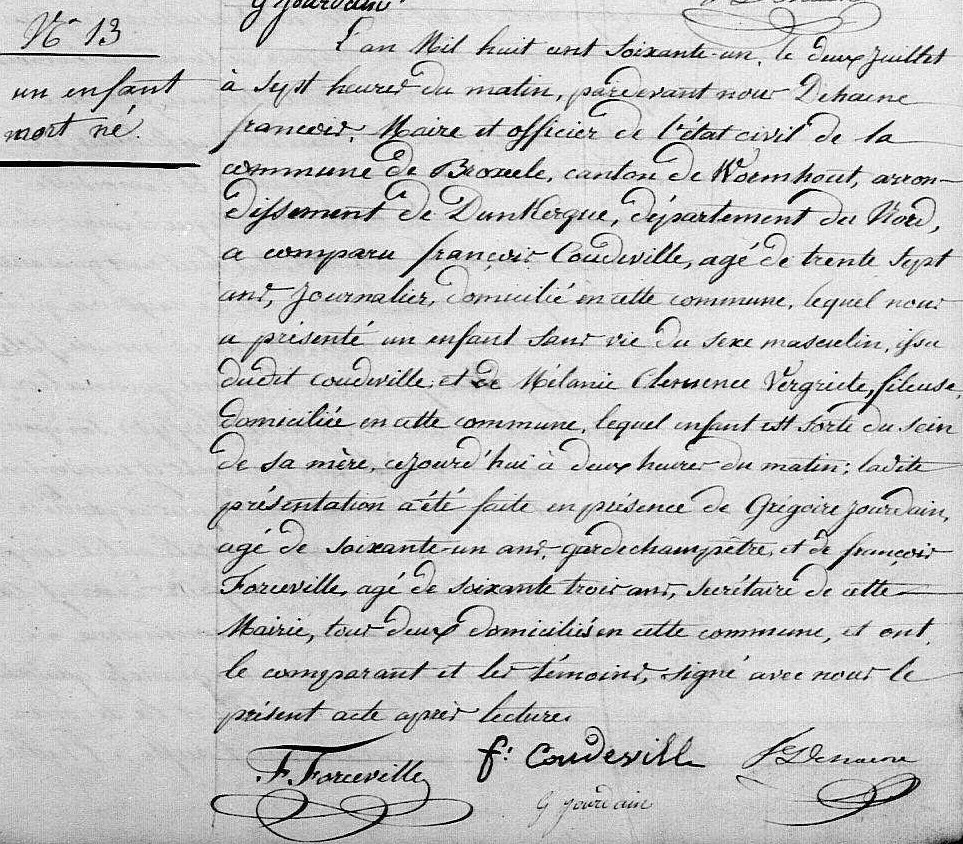 G Jourdain
N° 13
un enfant
mort né.
L'an Mil huit cent soixante-un, le deux Juillet
à sept heures du matin, pardevant nous Dehaene
françois, Maire et officier de l'état civil de la
commune de Broxeele, canton de Wormhout, arron-
dissement de Dunkerque, département du Nord,
a comparu françois Coudeville, agé de trente sept
ans, Journalier, domicilié en cette commune, lequel nous
a présenté un enfant sans vie du sexe masculin, issu
dudit Coudeville, et de Mélanie Clemence Vergriete, fileuse,
domiciliée en cette commune, lequel enfant est sorte du sein
de sa mère, cejourd'hui à deux heures du matin; ladite
présentation a été faite en présence de Grégoire Jourdain,
agé de soixante-un ans, gardechampêtre, et de françois
Forceville, agé de soixante trois ans, secrétaire de cette
Mairie, tous deux domiciliés en cette commune, et ont,
le comparant et les témoins, signé avec nous le
présent acte après lecture.
F. Forceville f: Coudeville f Dehaene
G Jourdain